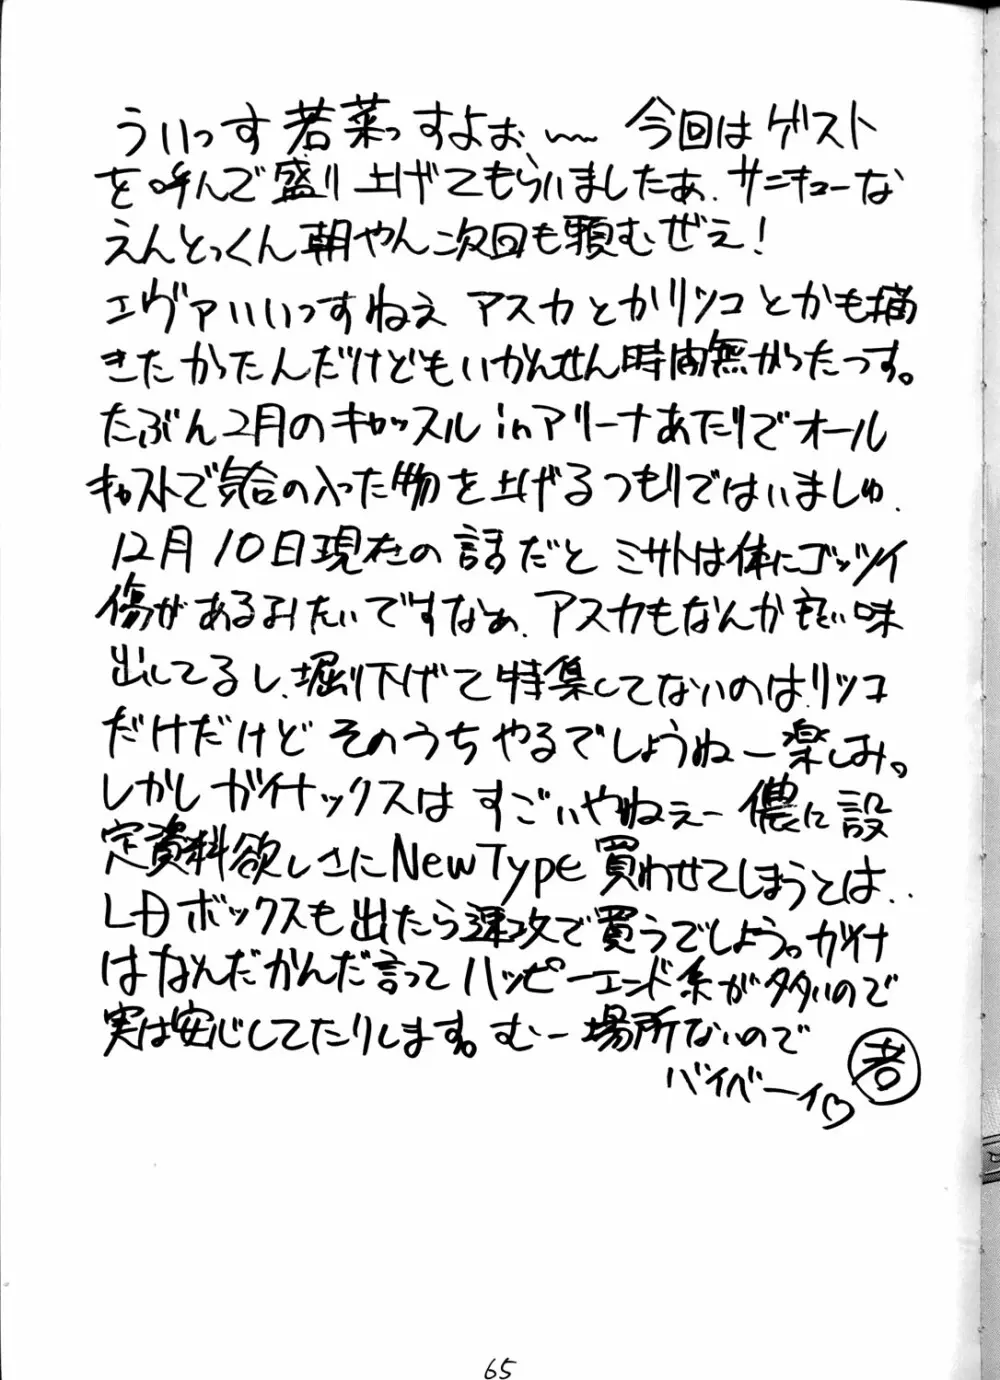 ういっす 若菜っすよぉ、〜 今回はゲスト
を呼んで盛り上げてもらいましたぁ、サンキューな
えんとっくん朝やん次回も頼むぜえ！
エヴァいいっすねえ アスカとかリツコとかも描
きたかったんだけどもいかんせん時間無かったっす。
たぶん2月のキャッスルinアリーナあたりでオール
キャストで気合の入った物を上げるつもりではいましゅ.
12月10日現在の話だと ミサトは体にゴッツイ
傷があるみたいですなぁ、アスカもなんか良い味
出してるし、堀り下げて特集してないのはリツコ
だけだけど そのうちやるでしょうねー楽しみ。
しかしガイナックスは すごいやねぇー 儂に設
定資料欲しさにNewType買わせてしまうとは..
LDボックスも出たら速攻で買うでしょう。ガイナ
はなんだかんだ言って ハッピーエンド系が多いので
実は安心してたりします。むー場所ないので
バイベーイ♡ 若
65